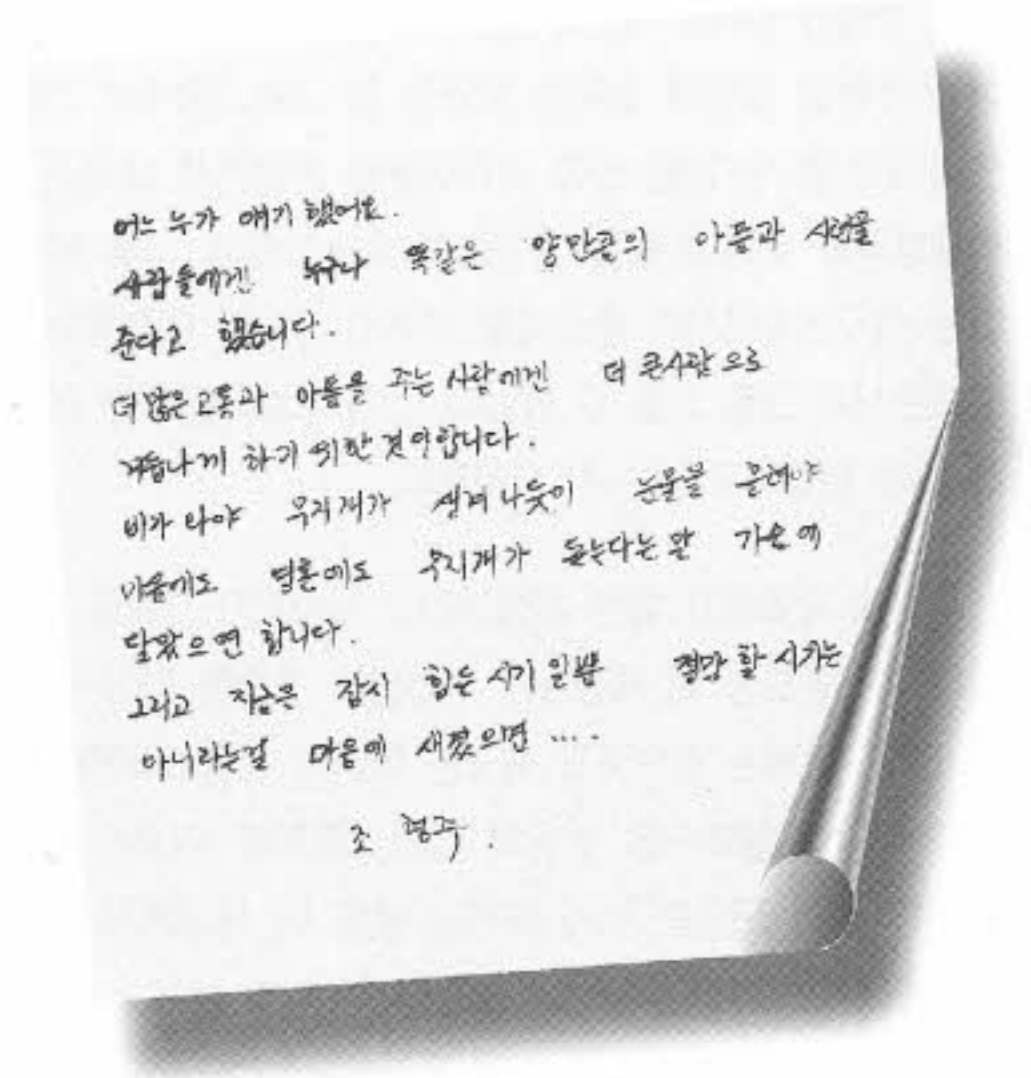 어느 누가 얘기 했어요.
사람들에겐 누구나 똑같은 양만큼의 아픔과 시련을
준다고 했습니다.
더많은고통과 아픔을 주는 사람에겐 더 큰사람으로
거듭나게 하기 위한것이랍니다.
비가 와야 무지개가 생겨 나듯이 눈물을 흘려야
마음에도 영혼에도 무지개가 돋는다는말 가슴에
닿았으면 합니다.
그리고 지금은 잠시 힘든 시기 일뿐 절망 할 시기는
아니라는걸 마음에 새겼으면 ....
조 형주.